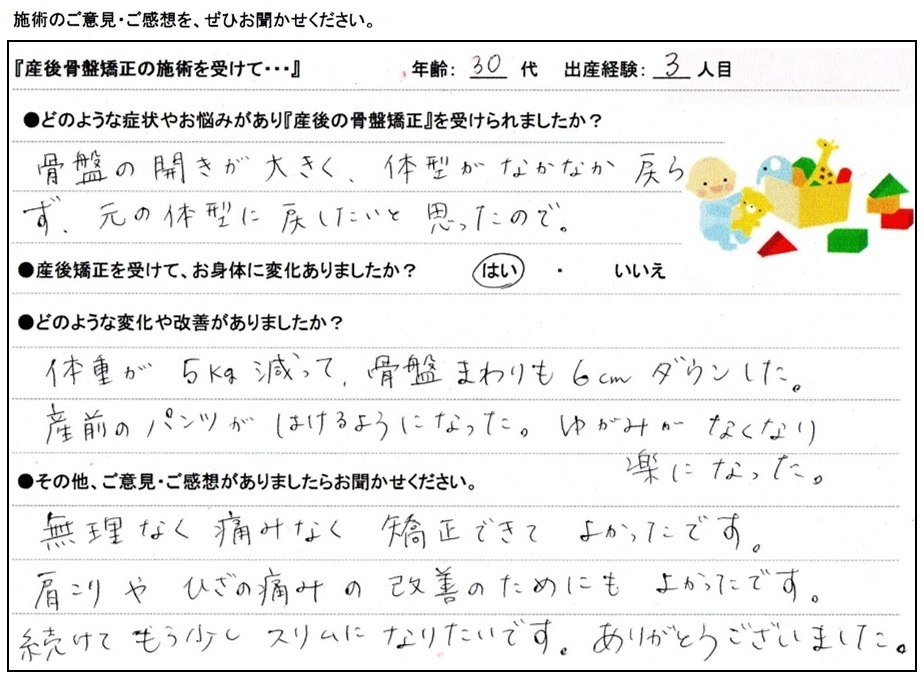 施術のご意見・ご感想を、ぜひお聞かせください。
『産後骨盤矯正の施術を受けて・・・』 年齢： 30 代 出産経験： 3 人目
●どのような症状やお悩みがあり『産後の骨盤矯正』を受けられましたか？
骨盤の開きが大きく、体型がなかなか戻ら
ず、元の体型に戻したいと思ったので。
●産後矯正を受けて、お身体に変化ありましたか？ はい ・ いいえ
●どのような変化や改善がありましたか？
体重が 5Kg減って、骨盤まわりも6cmダウンした。
産前のパンツがはけるようになった。ゆがみがなくなり
楽になった。
●その他、ご意見・ご感想がありましたらお聞かせください。
無理なく痛みなく 矯正できてよかったです。
肩こりやひざの痛みの改善のためにもよかったです。
続けてもう少しスリムになりたいです。ありがとうございました。